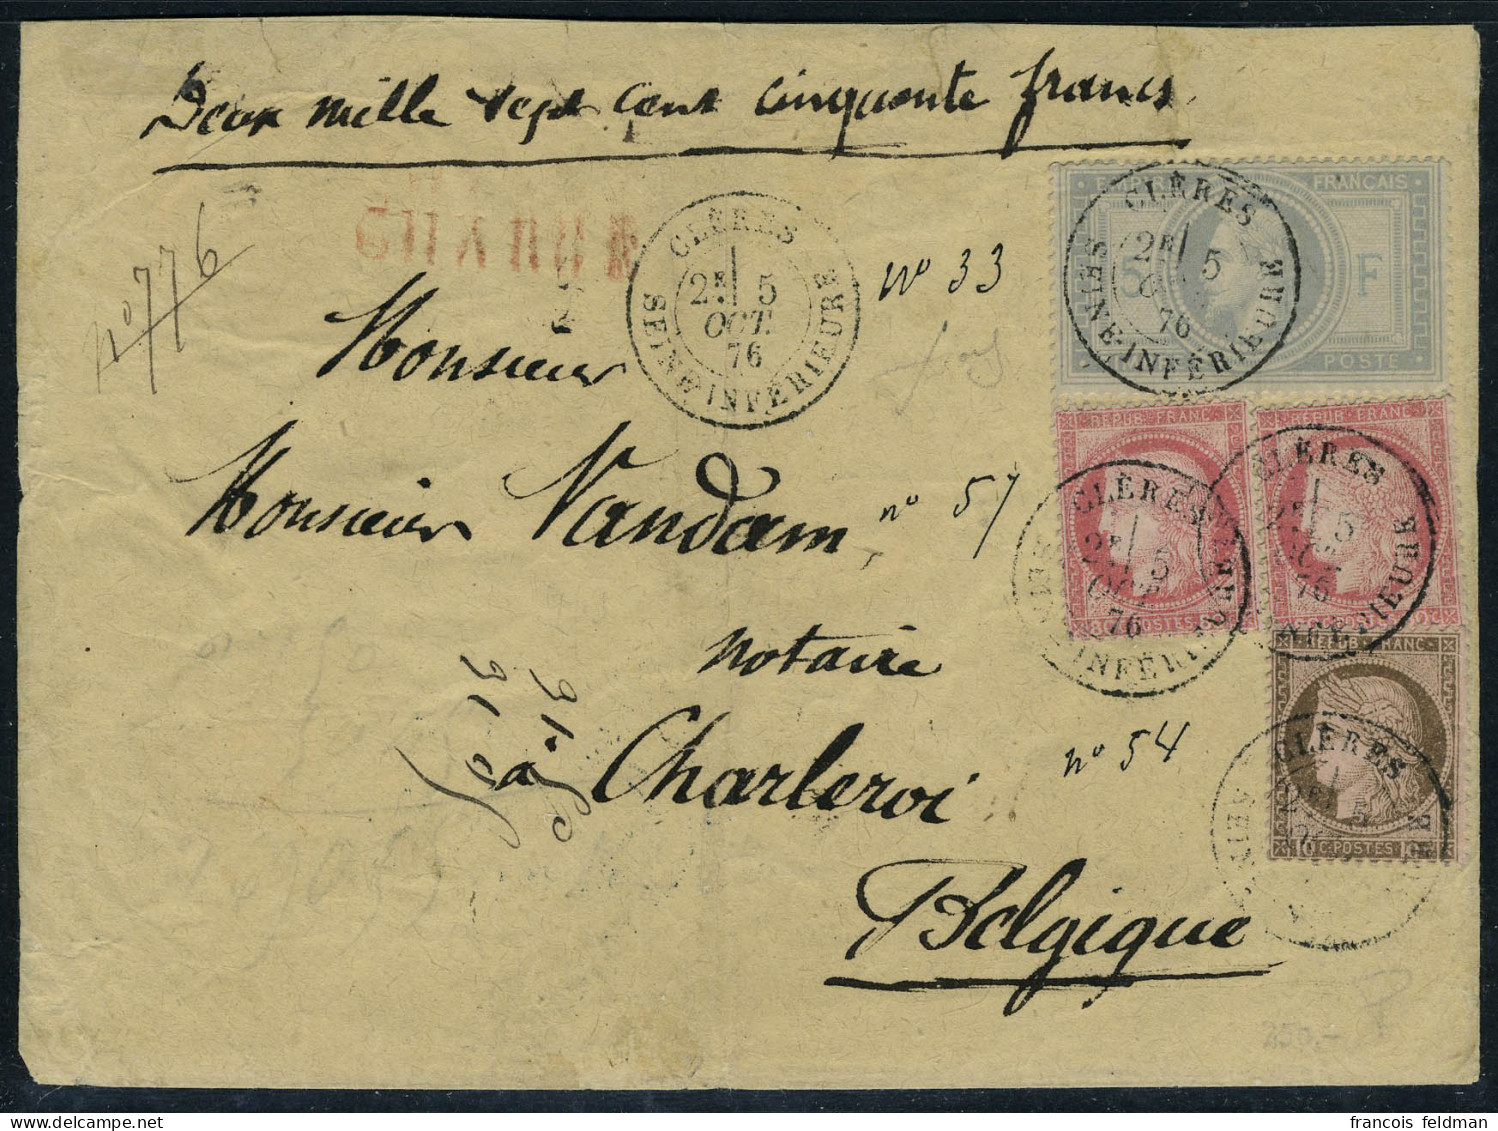 Deux mille sept cent cinquante francs
EMPIRE FRANÇAIS
5 F
POSTE
CLÈRES
2E 5
OCT.
76
SEINE-INFÉRIEURE
CLÈRES
2E 5
76
SEINE-INFÉRIEURE
no 776
no 33
Monsieur
REPUB. FRANC.
REPUB. FRANC.
CLÈRES
2E 5
OCT
76
SEINE-INFÉRIEURE
CLÈRES
5
76
Monsieur Vandam no 57
80 C. POSTES 80
notaire
REPUB. FRANC.
CLÈRES
2E 5
10 C. POSTES 10
à Charleroi no 54
Belgique
250.-
francois feldman